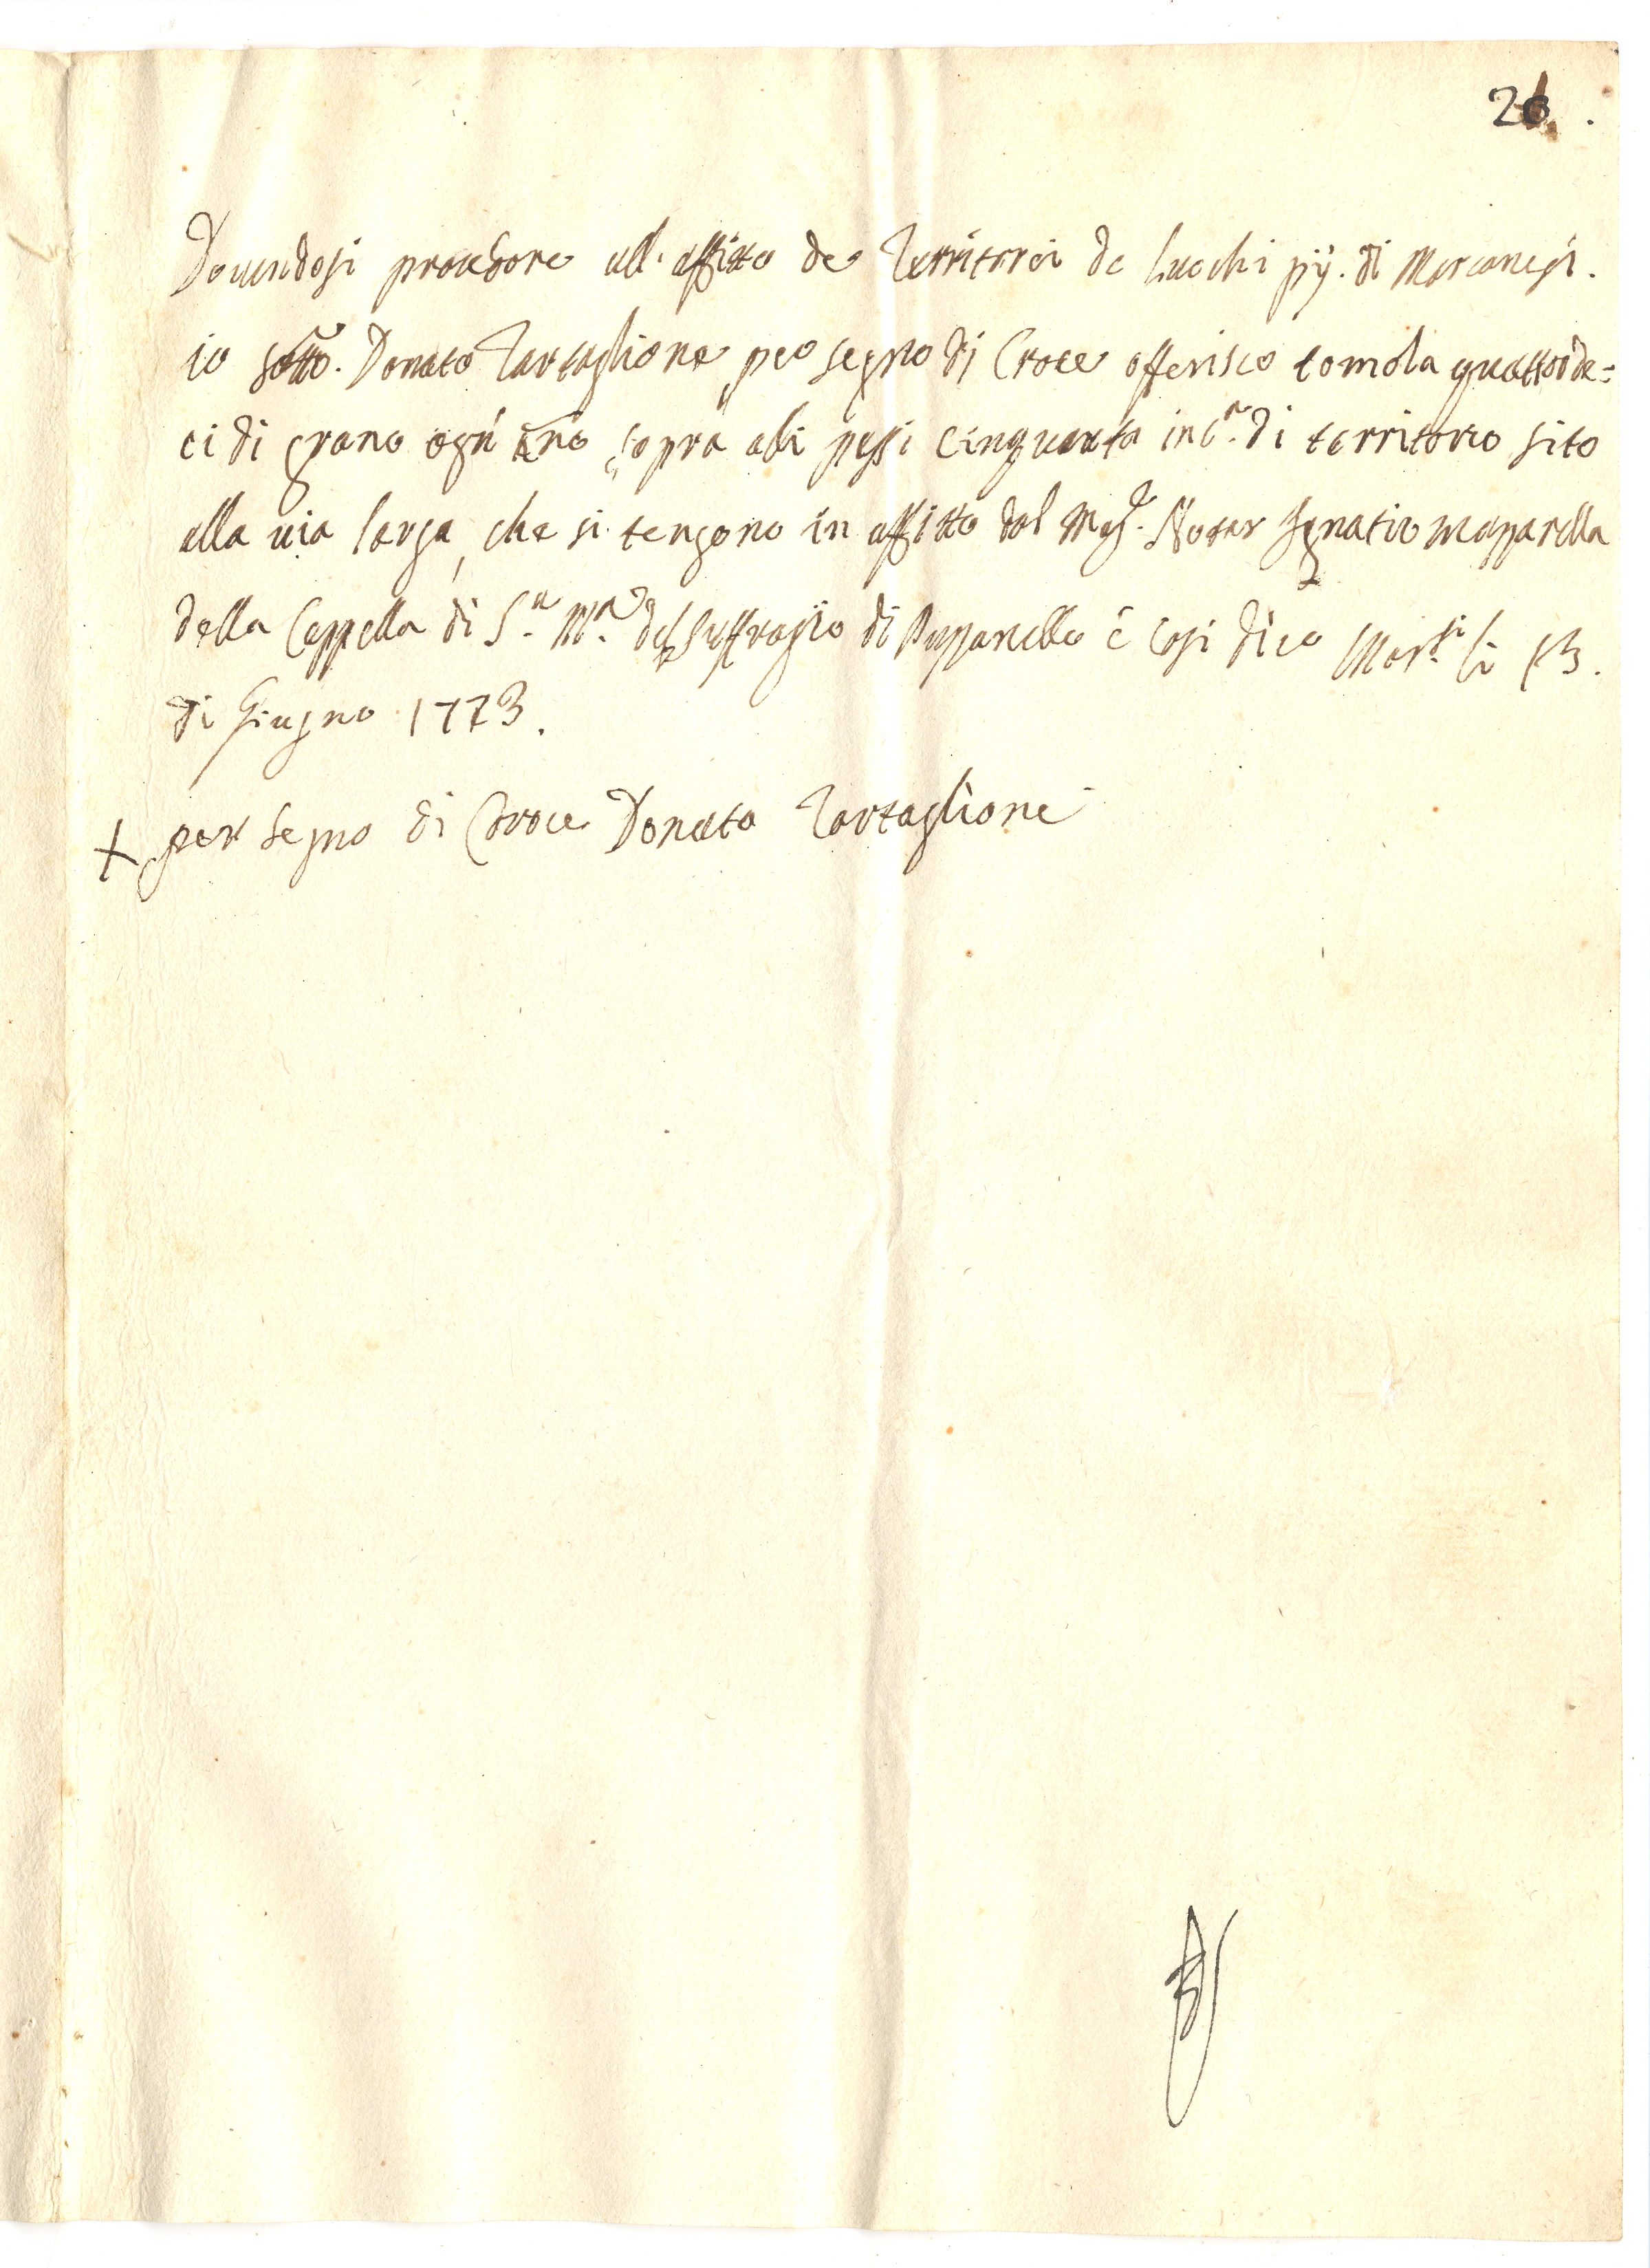 26.
Dovendosi procedere all'affitto de Territorei de Luochi pij. di Marcanesi.
io sotto. Donato Tartaglione per segno di Croce offerisco tomola quattorde=
ci di grano ogn'anno sopra alli passi Cinquanta inc.a di territorio sito
alla via larga, che si tengono in affitto dal Mag.co Notar Ignatio
della Cappella di S.a M.a del Suffragio di e cosi dico Mar.si li 13.
di Giugno 1773.
+ per segno di Croce Donato Tartaglione